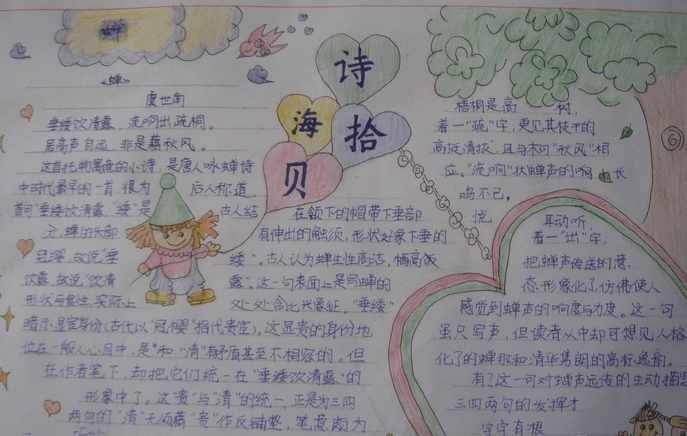 蝉
诗
海拾
贝
《蝉》
虞世南
垂緌饮清露,流响出疏桐。
居高声自远,非是藉秋风。
这首托物寓意的小诗,是唐人咏蝉诗
中时代最早的一首,很为 后人称道。
首句“垂緌饮清露”,“緌”是 古人结
在颔下的帽带下垂部
分,蝉的头部 有伸出的触须,形状好象下垂的
冠缨,故说“垂 緌”。古人认为蝉生性高洁,栖高饮
饮露,故说“饮清 露”。这一句表面上是写蝉的
形状与食性,实际上 处处含比兴象征。“垂緌”
暗示显宦身份(古代以“冠缨”指代贵宦)。这显贵的身份地
位在一般人心目中,是 和“清”有矛盾甚至不相容的。但
在作者笔下,却把它们统一在“垂緌饮清露”的
形象中了。这“贵”与“清”的统一,正是为三四
两句的“清”无须藉“贵”作反铺垫,笔意颇为
梧桐是高 树,
着一“疏”字,更见其枝干的
高挺清拔,且与末句“秋风”相
应。“流响”状蝉声的 长
鸣不已,
悦 耳动听,
着一“出”字,
把蝉声传送的意
态形象化了,仿佛使人
感觉到蝉声的响度与力度。这一句
虽只写声,但读者从中却可想见人格
化了的蝉那和清华隽朗的高标逸韵。
有了这一句对蝉声远传的生动描
三四两句的发挥才
字字有根